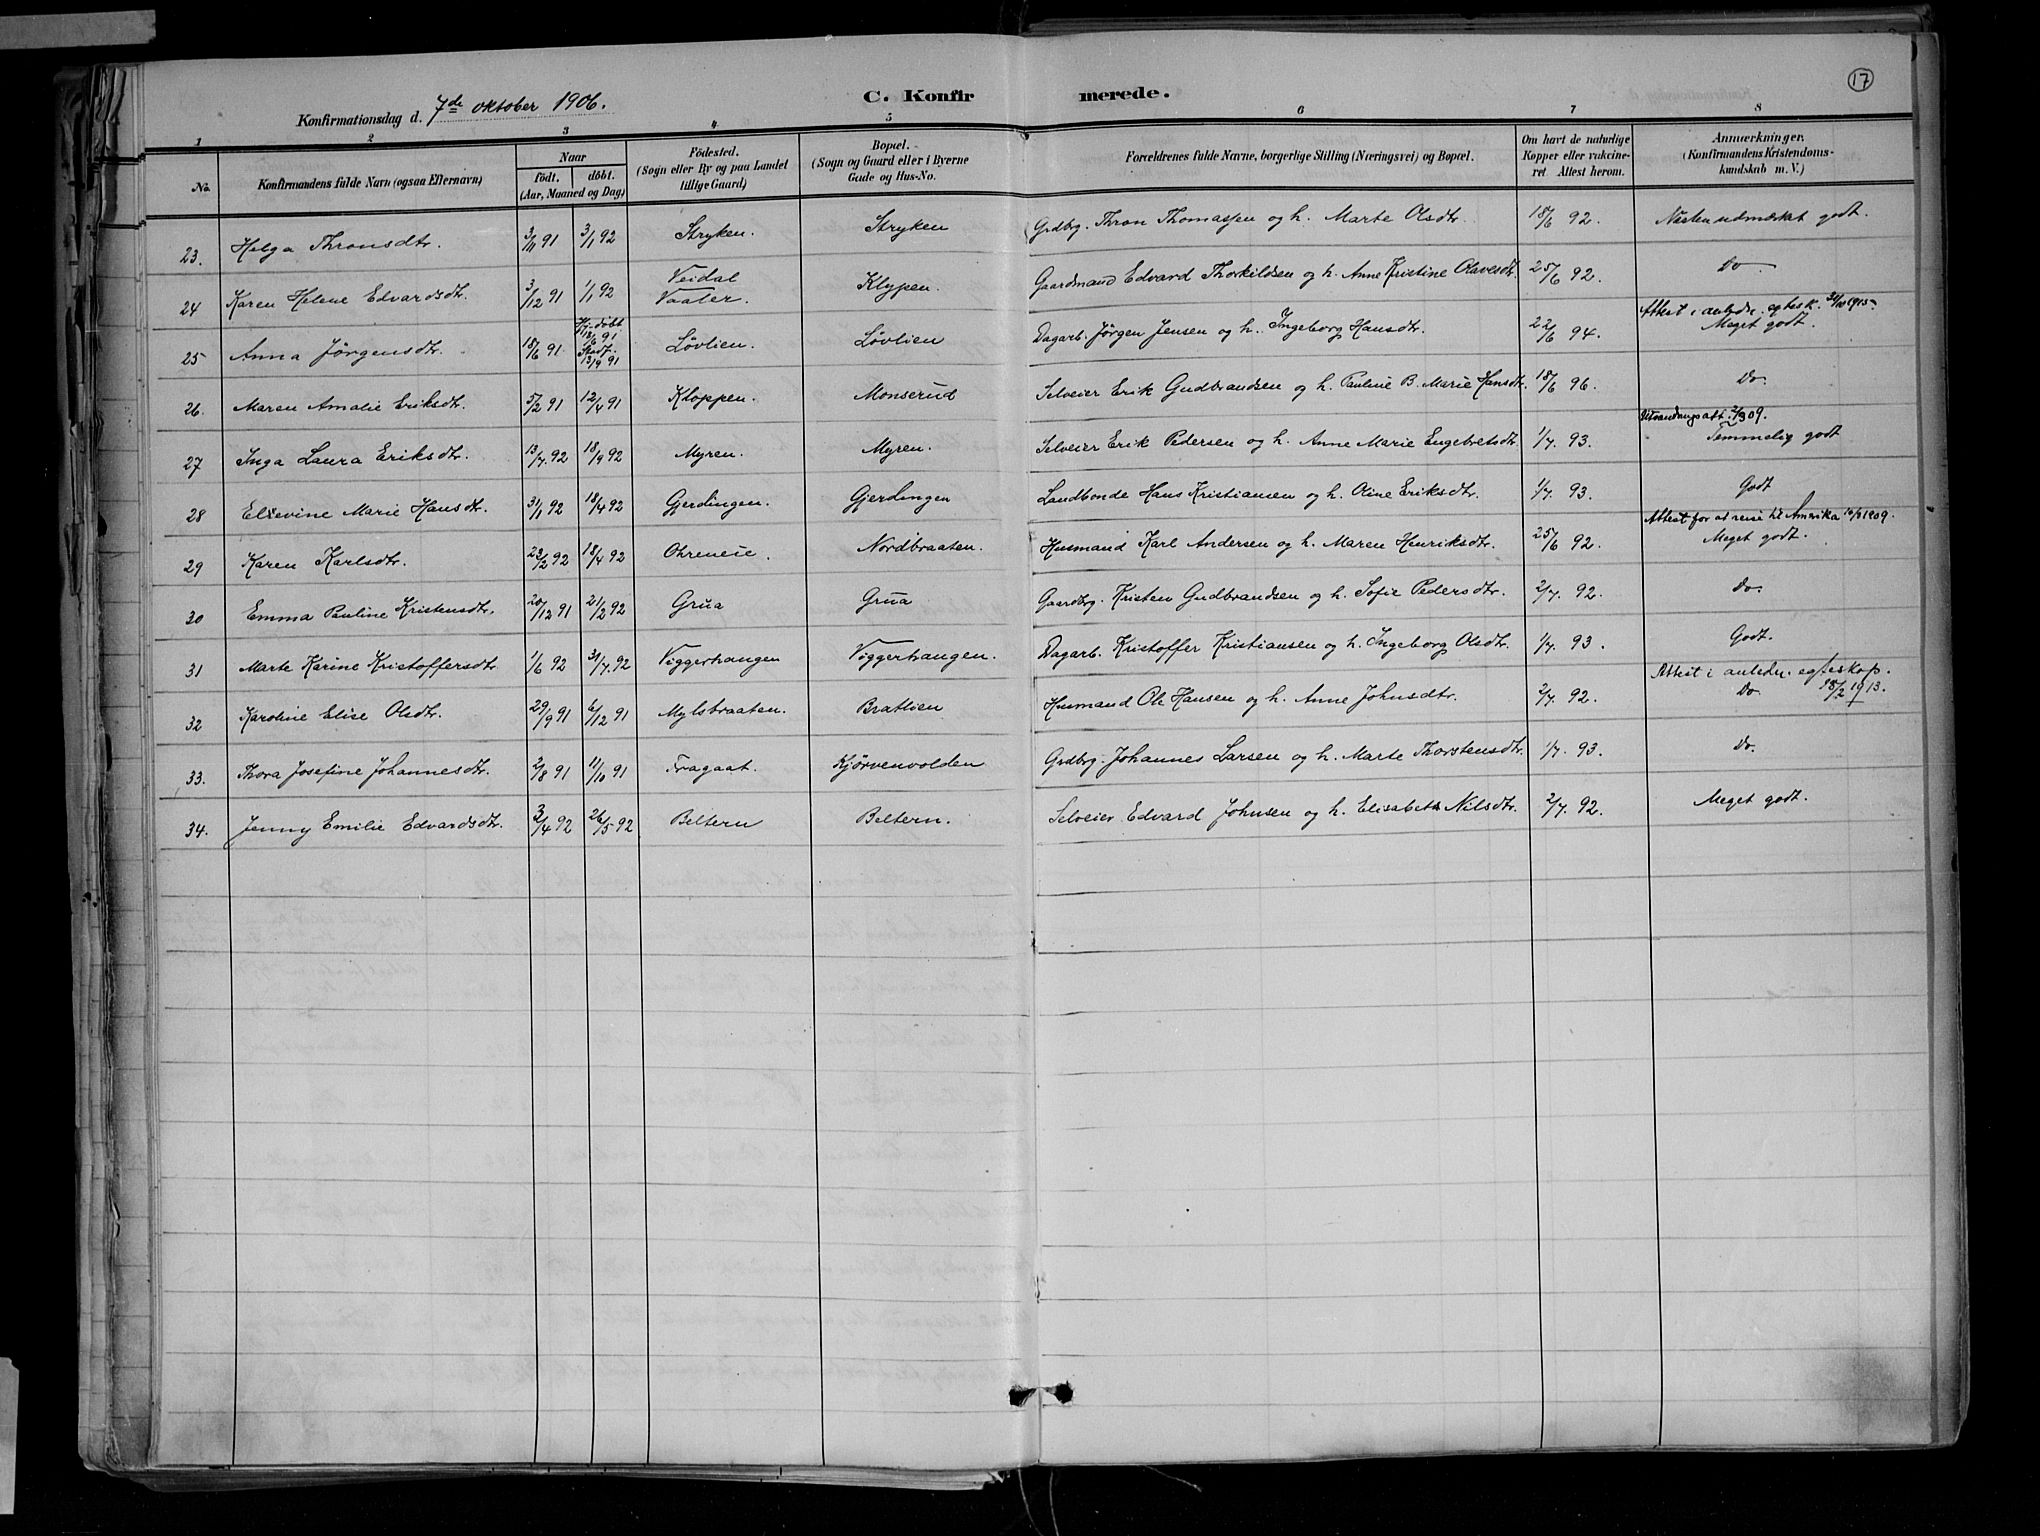 17
Konfirmationsdag d. 7de oktober 1906. C. Konfirmerede.
1 2 3 4 5 6 7 8
No. Konfirmandens fulde Navn (ogsaa Efternavn) Naar födt. döbt. (Aar, Maaned og Dag) Födested. (Sogn eller By og paa Landet tillige Gaard) Bopæl. (Sogn og Gaard eller i Byerne Gade og Hus-No. Forældrenes fulde Navne, borgerlige Stilling (Næringsvei) og Bopæl. Om havt de naturlige Kopper eller vakcineret Attest herom. Anmærkninger. (Konfirmandens Kristendomskundskab m. V.)
23. Helga Thronsdtr. 3/11 91 3/1 92 Stryken. Stryken Grdbrg. Thron Thomassen og h. Marte Olsdtr. 18/6 92. Næsten udmærket godt.
24 Karen Helene Edvardsdtr. 3/12 91 1/1 92 Veidal Vaaler. Klypen. Gaardmand Edvard Thorkildsen og h. Anne Kristine Olavesdtr. 25/6 92. Do.
25 Anna Jørgensdtr. 15/6 91 Hj. døbt 18/6 91 Stadf. 13/9 91 Løvlien. Løvlien Dagarb. Jørgen Jensen og h. Ingeborg Hansdtr. 22/6 94. Attest i anledn. egtesk. 30/10 1915 Meget godt.
26. Maren Amalie Eriksdtr. 5/2 91 12/4 91 Kloppen. Monserud Selveier Erik Gudbrandsen og h. Pauline B. Marie Hansdtr. 18/6 96. Do.
27 Inga Laura Eriksdtr. 13/7 92 18/9 92 Myren. Myren. Selveier Erik Pedersen og h. Anne Marie Engebretsdtr. 1/7 93. Udvandringsatt. 2/3 09. Temmelig godt
28 Elsevine Marie Hansdtr. 31/1 92 18/4 92 Gjerdingen. Gjerdingen Landbonde Hans Kristiansen og h. Oline Eriksdtr. 1/7 93. Godt
29 Karen Karlsdtr. 23/2 92 18/4 92 Ohreneie. Nordbraaten. Husmand Karl Andersen og h. Maren Henriksdtr. 25/6 92. Attest for at reise til Amerika 1909. Meget godt.
30 Emma Pauline Kristensdtr. 20/12 91 21/2 92 Grua Grua Gaardbg. Kristen Gudbrandsen og h. Sofie Pedersdtr. 2/7 92. Do.
31 Marte Karine Kristoffersdtr 1/6 92 31/7 92 Viggerhangen Viggerhangen. Dagarb. Kristoffer Kristiansen og h. Ingeborg Olsdtr. 1/7 93. Godt.
32 Karoline Elise Olsdtr. 29/9 91 6/12 91 Mylsbraaten. Bratlien Husmand Ole Hansen og h. Anne Johnsdtr. 2/7 92. Attest i anledn. egteskap. 18/2 1913. Do.
33. Thora Josefine Johannesdtr. 2/8 91 11/10 91 Fragaat. Kjørvenvolden Grdbrg. Johannes Larsen og h. Marte Thorstensdtr. 1/7 93. Do.
34. Jenny Emilie Edvardsdtr. 3/4 92 26/5 92 Beltern Beltern. Selveier Edvard Johnsen og h. Elisabeth Nilsdtr. 2/7 92. Meget godt.